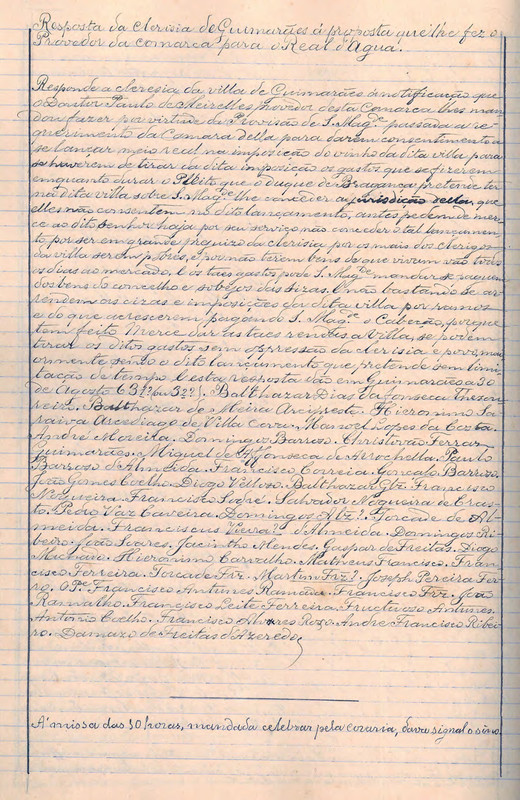 Resposta da clerisia de Guimarães á proposta que lhe fez o
Provedor da comarca para o Real d'Agua.
Responde a cleresia da villa de Guimarães á notificação que
o Doutor Paulo de Meirelles provedor desta Comarca lhes man
dou fazer por virtude da Provisão de S. Mag.de passada a re-
querimento da Camara della para darem consentimento a
se lançar meio real na imposição do vinho da dita villa para
se haverem de tirar da dita imposição os gastos que se fizerem
emquanto durar o Pleito que o duque de Bragança pretende ter
na dita villa sobre S. Mag.de lhe conceder a jurisdição della, que
elles não consentem no dito lançamento, antes pedem de mer-
ce ao dito senhor haja por seu serviço não conceder o tal lançamen-
to, por ser em grande prejuizo da clerisia por os mais dos clerigos
da villa serem pobres, e por não terem bens de que vivam vão todos
os dias ao mercado, e os taes gastos pode S. Mag.de mandar se saquem
dos bens do concelho e sobejos das sizas, e não bastando se ar-
rendem as cizas e imposições da dita villa por ramos
e do que acrescerem pagando S. Mag.de o Cabeção, porque
tem feito Merce dar as taes rendas a Villa, se podem
tirar os ditos gastos sem oppressão da clerisia e povo, mai
ormente sendo o dito lançamento que pretende sem limi
tação de tempo. E esta resposta dão em Guimarães a 30
de Agosto 63? (ou 32?). Balthazar Dias da Fonseca thesou-
reiro. Balthazar de Meira Arcipreste. Hieronimo Sa
raiva Arcediago de Villa Cova. Manoel Lopes da Costa.
André Moreira. Domingos Barroso. Christovão Ferraz
Guimarães. Miguel de Affonseca de Arrochella. Paulo
Barboso de Almeida. Francisco Correia. Gonçalo Barrozo.
João Gomes Coelho. Diogo Velloso. Balthazar Glz. Francisco
Nogueira. Francisco Sodré. Salvador Nogueira de Cras-
to. Pedro Vaz Caveira. Domingos Alz?. Torcade de Al-
meida. Franciscus Vieira? d'Almeida. Domingos Ri
beiro. João Soares. Jacintho Mendes. Gaspar de Freitas. Diogo
Machado. Hieronimo Carvalho. Matheus Francisco. Fran-
cisco Ferreira. Torcade Frz. Martim Frz?. Joseph Pereira Fer-
ro. O P.e Francisco Antunes Ramada. Francisco Frz. João
Ramalho. Francisco Leite Ferreira. Fructuoso Antunes.
Antonio Coelho. Francisco Alvares Rozo. Andre Francisco Ribei-
ro. Damazo de Freitas d'Azeredo.
A' missa das 10 horas, mandada celebrar pela coraria, dava signal o sino